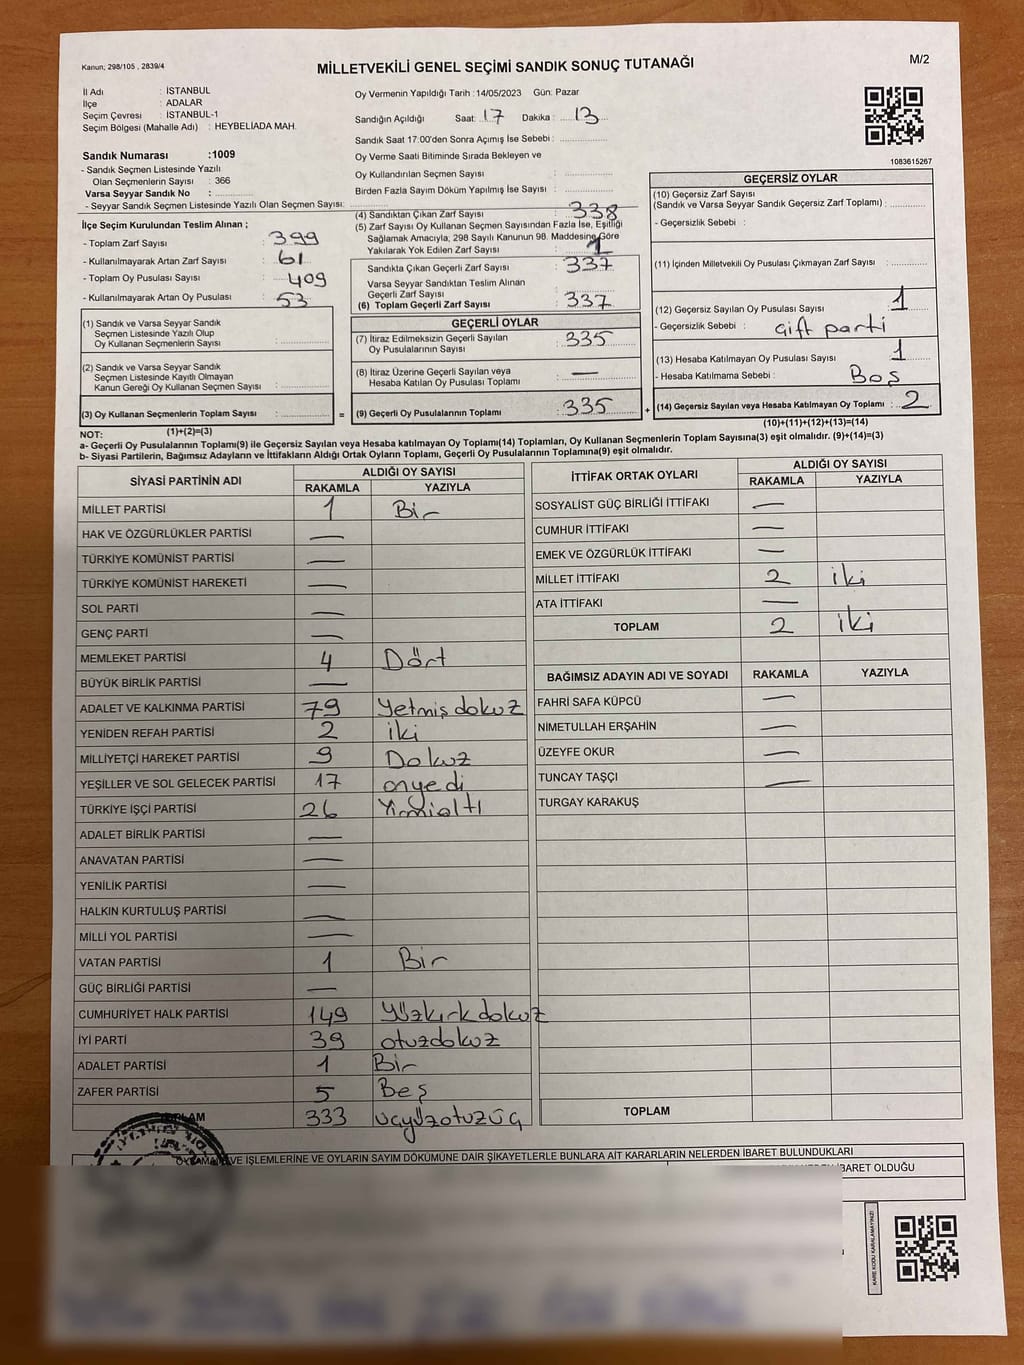 Kanun; 298/105 , 2839/4
MİLLETVEKİLİ GENEL SEÇİMİ SANDIK SONUÇ TUTANAĞI
M/2
İl Adı : İSTANBUL
İlçe : ADALAR
Seçim Çevresi : İSTANBUL-1
Seçim Bölgesi (Mahalle Adı) : HEYBELİADA MAH.
Oy Vermenin Yapıldığı Tarih : 14/05/2023 Gün: Pazar
Sandığın Açıldığı Saat: 17 Dakika : 13
Sandık Saat 17:00'den Sonra Açımış İse Sebebi :
Oy Verme Saati Bitiminde Sırada Bekleyen ve
Oy Kullandırılan Seçmen Sayısı :
Birden Fazla Sayım Döküm Yapılmış İse Sayısı :
1083615267
Sandık Numarası :1009
- Sandık Seçmen Listesinde Yazılı
Olan Seçmenlerin Sayısı : 366
Varsa Seyyar Sandık No :
- Seyyar Sandık Seçmen Listesinde Yazılı Olan Seçmen Sayısı:
İlçe Seçim Kurulundan Teslim Alınan ;
- Toplam Zarf Sayısı : 399
- Kullanılmayarak Artan Zarf Sayısı : 61
- Toplam Oy Pusulası Sayısı : 409
- Kullanılmayarak Artan Oy Pusulası : 53
(1) Sandık ve Varsa Seyyar Sandık
Seçmen Listesinde Yazılı Olup
Oy Kullanan Seçmenlerin Sayısı :
(2) Sandık ve Varsa Seyyar Sandık
Seçmen Listesinde Kayıtlı Olmayan
Kanun Gereği Oy Kullanan Seçmen Sayısı :
(3) Oy Kullanan Seçmenlerin Toplam Sayısı :
(1)+(2)=(3)
(4) Sandıktan Çıkan Zarf Sayısı : 338
(5) Zarf Sayısı Oy Kullanan Seçmen Sayısından Fazla İse, Eşitliği
Sağlamak Amacıyla, 298 Sayılı Kanunun 98. Maddesine Göre
Yakılarak Yok Edilen Zarf Sayısı : 1
Sandıkta Çıkan Geçerli Zarf Sayısı : 337
Varsa Seyyar Sandıktan Teslim Alınan
Geçerli Zarf Sayısı :
(6) Toplam Geçerli Zarf Sayısı : 337
GEÇERLİ OYLAR
(7) İtiraz Edilmeksizin Geçerli Sayılan
Oy Pusulalarının Sayısı : 335
(8) İtiraz Üzerine Geçerli Sayılan veya
Hesaba Katılan Oy Pusulası Toplamı : —
= (9) Geçerli Oy Pusulalarının Toplamı : 335 +
GEÇERSİZ OYLAR
(10) Geçersiz Zarf Sayısı
(Sandık ve Varsa Seyyar Sandık Geçersiz Zarf Toplamı) :
- Geçersizlik Sebebi :
(11) İçinden Milletvekili Oy Pusulası Çıkmayan Zarf Sayısı :
(12) Geçersiz Sayılan Oy Pusulası Sayısı : 1
- Geçersizlik Sebebi : Çift parti
(13) Hesaba Katılmayan Oy Pusulası Sayısı : 1
- Hesaba Katılmama Sebebi : Boş
(14) Geçersiz Sayılan veya Hesaba Katılmayan Oy Toplamı : 2
(10)+(11)+(12)+(13)=(14)
NOT:
a- Geçerli Oy Pusulalarının Toplamı(9) ile Geçersiz Sayılan veya Hesaba katılmayan Oy Toplamı(14) Toplamları, Oy Kullanan Seçmenlerin Toplam Sayısına(3) eşit olmalıdır. (9)+(14)=(3)
b- Siyasi Partilerin, Bağımsız Adayların ve İttifakların Aldığı Ortak Oyların Toplamı, Geçerli Oy Pusulalarının Toplamına(9) eşit olmalıdır.
SİYASİ PARTİNİN ADI ALDIĞI OY SAYISI
RAKAMLA YAZIYLA
MİLLET PARTİSİ 1 Bir
HAK VE ÖZGÜRLÜKLER PARTİSİ —
TÜRKİYE KOMÜNİST PARTİSİ —
TÜRKİYE KOMÜNİST HAREKETİ —
SOL PARTİ —
GENÇ PARTİ —
MEMLEKET PARTİSİ 4 Dört
BÜYÜK BİRLİK PARTİSİ —
ADALET VE KALKINMA PARTİSİ 79 Yetmiş dokuz
YENİDEN REFAH PARTİSİ 2 iki
MİLLİYETÇİ HAREKET PARTİSİ 9 Dokuz
YEŞİLLER VE SOL GELECEK PARTİSİ 17 onyedi
TÜRKİYE İŞÇİ PARTİSİ 26 Yirmialtı
ADALET BİRLİK PARTİSİ —
ANAVATAN PARTİSİ —
YENİLİK PARTİSİ —
HALKIN KURTULUŞ PARTİSİ —
MİLLİ YOL PARTİSİ —
VATAN PARTİSİ 1 Bir
GÜÇ BİRLİĞİ PARTİSİ —
CUMHURİYET HALK PARTİSİ 149 Yüzkırkdokuz
İYİ PARTİ 39 otuzdokuz
ADALET PARTİSİ 1 Bir
ZAFER PARTİSİ 5 Beş
TOPLAM 333 üçyüzotuzüç
İTTİFAK ORTAK OYLARI ALDIĞI OY SAYISI
RAKAMLA YAZIYLA
SOSYALİST GÜÇ BİRLİĞİ İTTİFAKI —
CUMHUR İTTİFAKI —
EMEK VE ÖZGÜRLÜK İTTİFAKI —
MİLLET İTTİFAKI 2 iki
ATA İTTİFAKI —
TOPLAM 2 iki
BAĞIMSIZ ADAYIN ADI VE SOYADI RAKAMLA YAZIYLA
FAHRİ SAFA KÜPCÜ —
NİMETULLAH ERŞAHİN —
ÜZEYFE OKUR —
TUNCAY TAŞÇI —
TURGAY KARAKUŞ
TOPLAM
VE İŞLEMLERİNE VE OYLARIN SAYIM DÖKÜMÜNE DAİR ŞİKAYETLERLE BUNLARA AİT KARARLARIN NELERDEN İBARET BULUNDUKLARI
İBARET OLDUĞU
KARE KODU KARALAMAYINIZ!